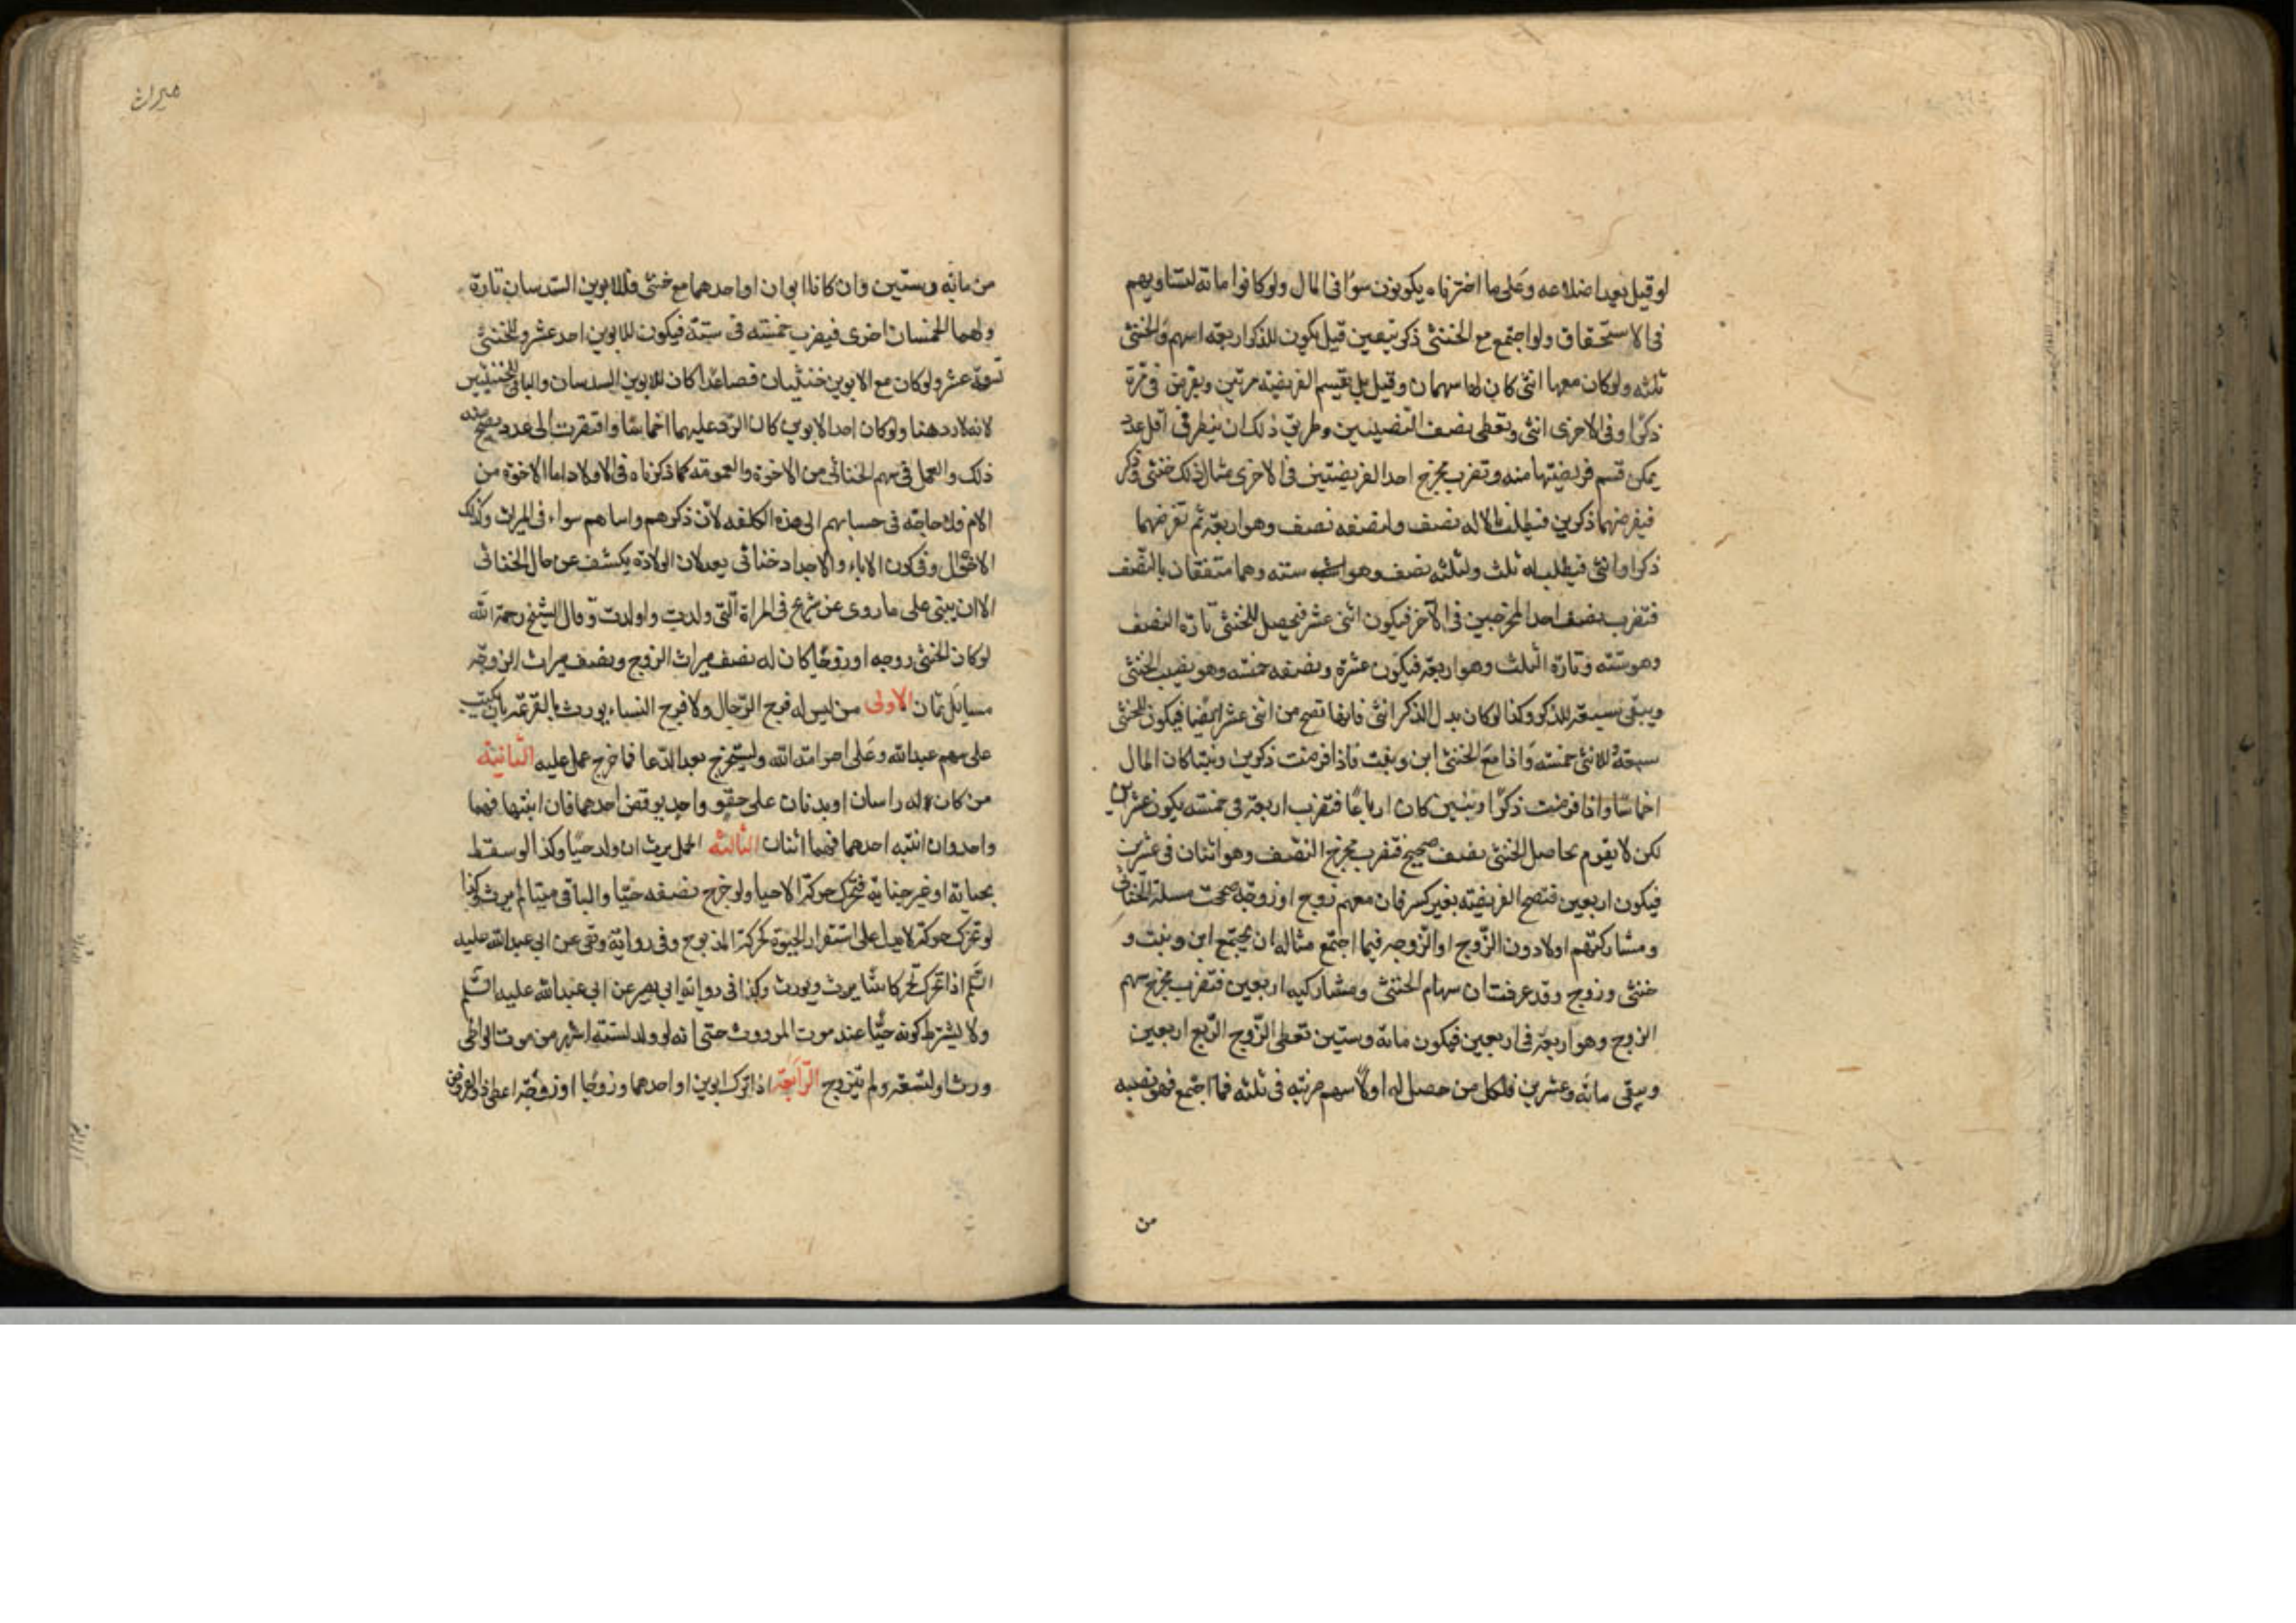 لو قيل بعد اضلاعه وعلى ما اخترناه يكونون سواء فى المال ولو كانوا مائة لتساويهم
فى الاستحقاق ولو اجتمع مع الخنثى ذكر بيقين قيل يكون للذكر اربعه اسهم وللخنثى
ثلثه ولو كان معهما انثى كان لها سهمان وقيل بل يقسم الفريضة مرتين ويفرض فى مرة
ذكرا وفى الاخرى انثى وتعطى نصف النصيبين وطريق ذلك ان ينظر فى اقل عدد
يمكن قسم فريضتهما منه وتضرب مخرج احد الفريضتين فى الاخرى مثال ذلك خنثى وذكر
فيفرضهما ذكرين فيطلب مالا له نصف ولنصفه نصف وهو اربعة ثم تفرضهما
ذكرا وانثى فيطلب له ثلث ولثلثه نصف وهو سته وهما متفقان بالنصف
فتضرب نصف احد المخرجين فى الآخر فيكون اثنى عشر فيحصل للخنثى تارة النصف
وهو ستة وتارة الثلث وهو اربعة فيكون عشرة ونصفه خمسه وهو نصيب الخنثى
ويبقى سبعة للذكر وكذا لو كان بدل الذكر انثى فانها تصح من اثنى عشر ايضا فيكون للخنثى
سبعة وللانثى خمسه واذا مع الخنثى ابن وبنت فاذا فرضت ذكرين وبنتا كان المال
اخماسا واذا فرضت ذكرا وبنتين كان ارباعا فتضرب اربعة فى خمسه يكون عشرين
لكن لا يقوم بحاصل الخنثى نصف صحيح فتضرب مخرج النصف وهو اثنان فى عشرين
فيكون اربعين فتصح الفريضة بغير كسر فان معهم زوج او زوجة صححت مسلة الخناثى
ومشاركتهم اولا دون الزوج او الزوجه فيما اجتمع مثاله ان يجتمع ابن وبنت و
خنثى وزوج وقد عرفت ان سهام الخنثى ومشاركيه اربعين فتضرب مخرج سهم
الزوج وهو اربعة فى اربعين فيكون مائة وستين تعطى الزوج الربع اربعين
ويبقى مائة وعشرين فلكل من حصل له اولا سهم ضربته فى ثلثه فما اجتمع فهو نصيبه
من
ميراث
من مائة وستين وان كانا ابوان او احدهما مع خنثى فللابوين السدسان تارة
ولهما الخمسان اخرى فيضرب خمسة فى ستة فيكون للابوين احد عشر وللخنثى
تسعة عشر ولو كان مع الابوين خنثيان فصاعدا كان للابوين السدسان والباقى للخنثيين
لانه لا رد هنا ولو كان احد الابوين كان الرد عليهما اخماسا وافتقرت الى عدد يصح منه
ذلك والعمل فى سهم الخناثى من الاخوة والعمومة كما ذكرناه فى الاولاد اما الاخوة من
الام فلا حاجة فى حسابهم الى هذه الكلفه لان ذكرهم وانثاهم سواء فى الميراث وكذلك
الاخوال وفى كون الاباء والاجداد خناثى بعد لان الولادة يكشف عن حال الخناثى
الا ان يبنى على ما روى عن شريح فى المراة التى ولدت واولدت وقال الشيخ رحمة الله
لو كان الخنثى زوجه او زوجا كان له نصف ميراث الزوج ونصف ميراث الزوجة
مسايل ثمان الاولى من ليس له فرج الرجال ولا فرج النساء يورث بالقرعة بان يكتب
على سهم عبد الله وعلى اخر امة الله وليستخرج بعد الدعا فما خرج عمل عليه الثانية
من كان له راسان او بدنان على حقو واحد يوقض احدهما فان انتبها فهما
واحد وان انتبه احدهما فهما اثنان الثالثة الحمل يرث ان ولد حيا وكذا لو سقط
بجناية او غير جناية فتحرك حركة الاحيا ولو خرج نصفه حيا والباقى ميتا لم يرث وكذا
لو تحرك حركة لا يدل على استقرار الحيوة كحركة المذبوح وفى رواية ربعى عن ابى عبد الله عليه
السلم اذا تحرك تحركا بينا يرث ويورث وكذا فى رواية ابى بصير عن ابى عبد الله عليه السلم
ولا يشترط كونه حيا عند موت الموروث حتى انه لو ولد لستة اشهر من موت الواطى
ورث او لتسعة ولم تتزوج الرابعة اذا ترك ابوين او احدهما وزوجا او زوجة اعطى ذو الفرض